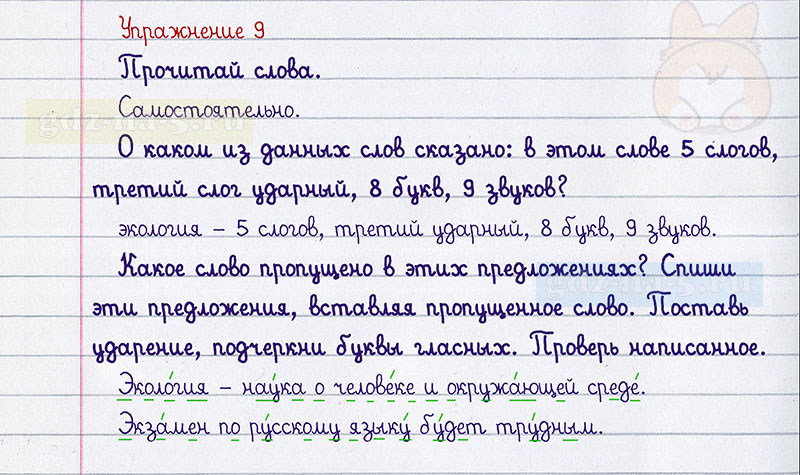 Упражнение 9
Прочитай слова.
Самостоятельно.
gdz-na-5.ru
О каком из данных слов сказано: в этом слове 5 слогов,
третий слог ударный, 8 букв, 9 звуков?
экология – 5 слогов, третий ударный, 8 букв, 9 звуков.
Какое слово пропущено в этих предложениях? Спиши
gdz-na-5.ru
эти предложения, вставляя пропущенное слово. Поставь
ударение, подчеркни буквы гласных. Проверь написанное.
Эколо́гия – нау́ка о челове́ке и окружа́ющей среде́.
Экза́мен по ру́сскому языку́ бу́дет тру́дным.